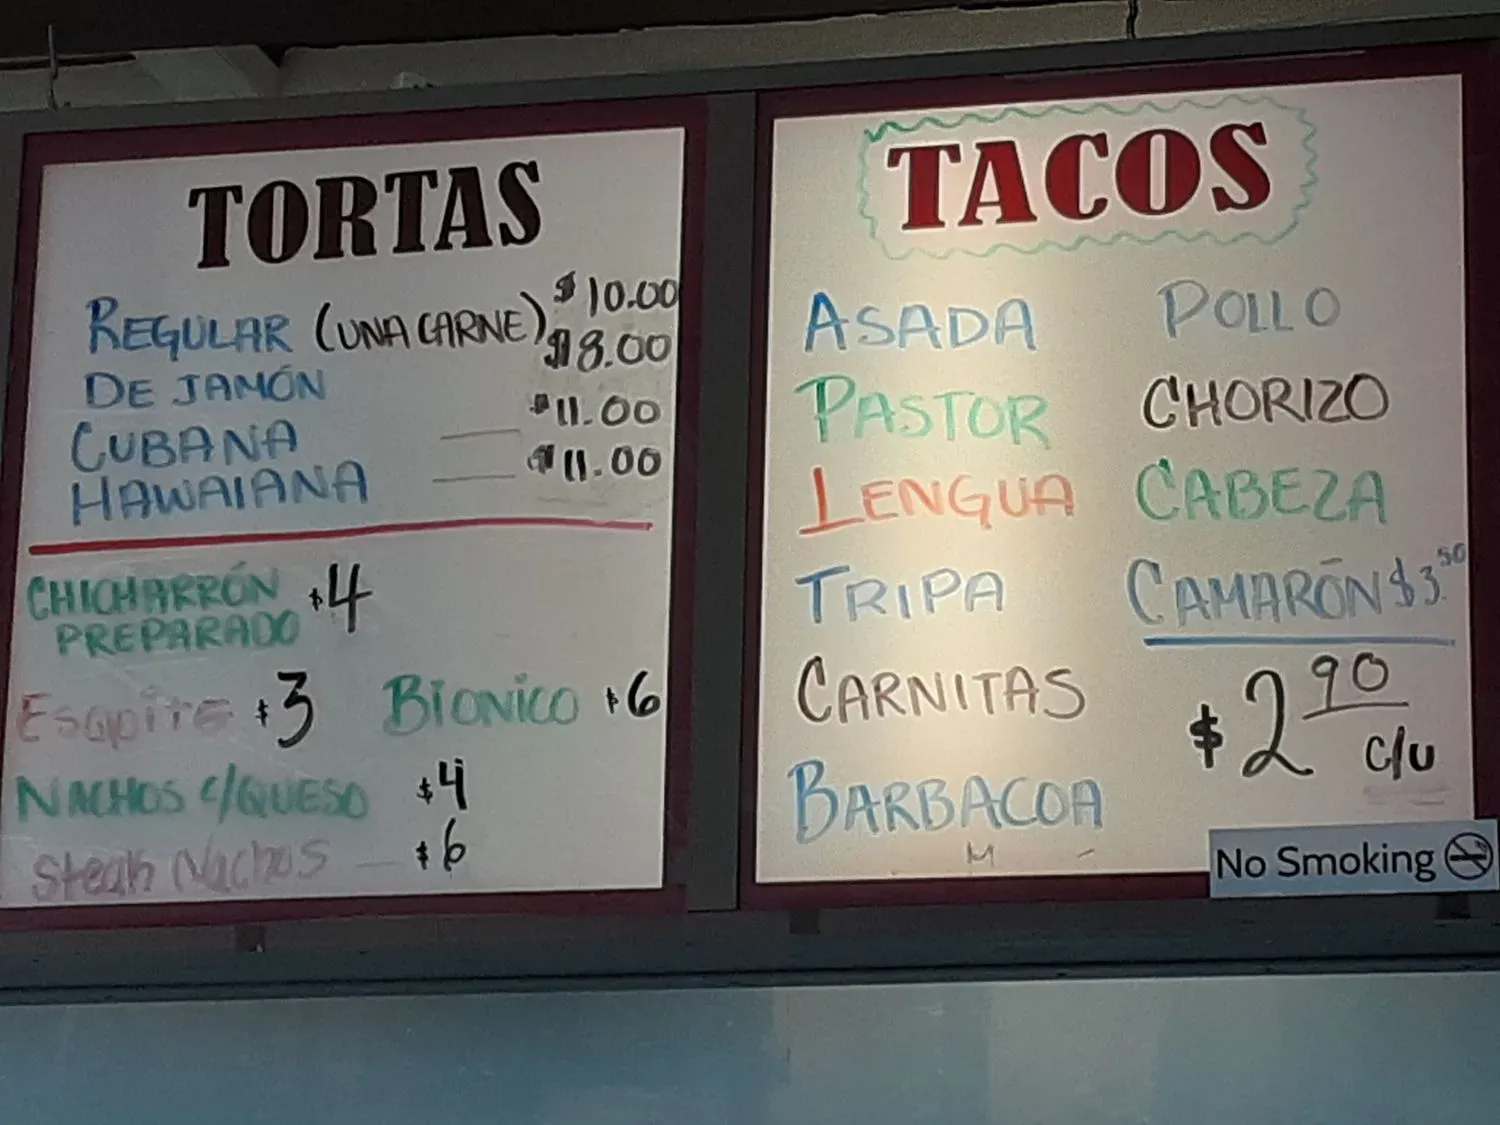 TORTAS
REGULAR (UNA CARNE) $10.00
DE JAMÓN $8.00
CUBANA $11.00
HAWAIANA $11.00
CHICHARRÓN $4
PREPARADO
Esquite $3 BIONICO $6
NACHOS C/QUESO $4
Steak Nachos $6
TACOS
ASADA POLLO
PASTOR CHORIZO
LENGUA CABEZA
TRIPA CAMARÓN $3.50
CARNITAS $2 90 c/u
BARBACOA
No Smoking